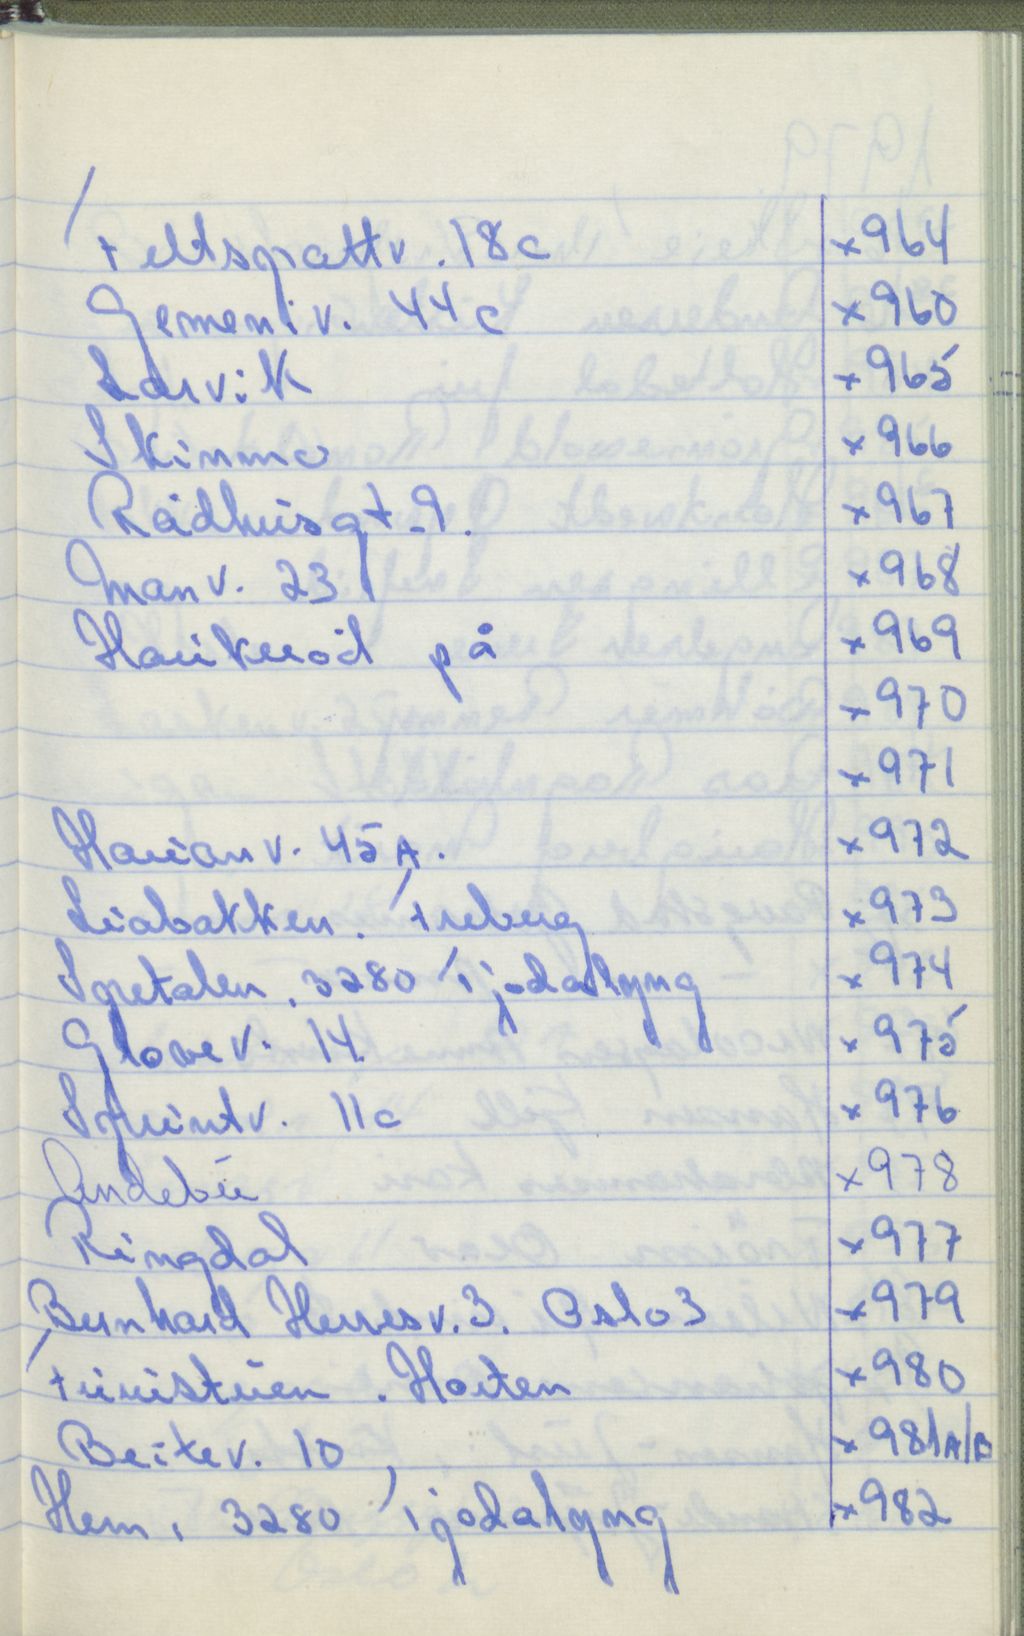 Feltspattv. 18c x 964
Geminiv. 44c x 960
Larvik x 965
Skinmo x 966
Rådhusgt. 9. x 967
Granv. 23 x 968
Haukerød på x 969
x 970
x 971
Havanv. 45A. x 972
Liabakken. Freberg x 973
Gretalen, 3280 Tjodalyng x 974
Glosev. 14 x 975
11c x 976
Andebu x 978
Ringdal x 977
Bernhard Herresv. 3. Oslo 3 x 979
Furustuen. Horten x 980
Beitev. 10 x 981A/B
Hem, 3280 Tjodalyng x 982